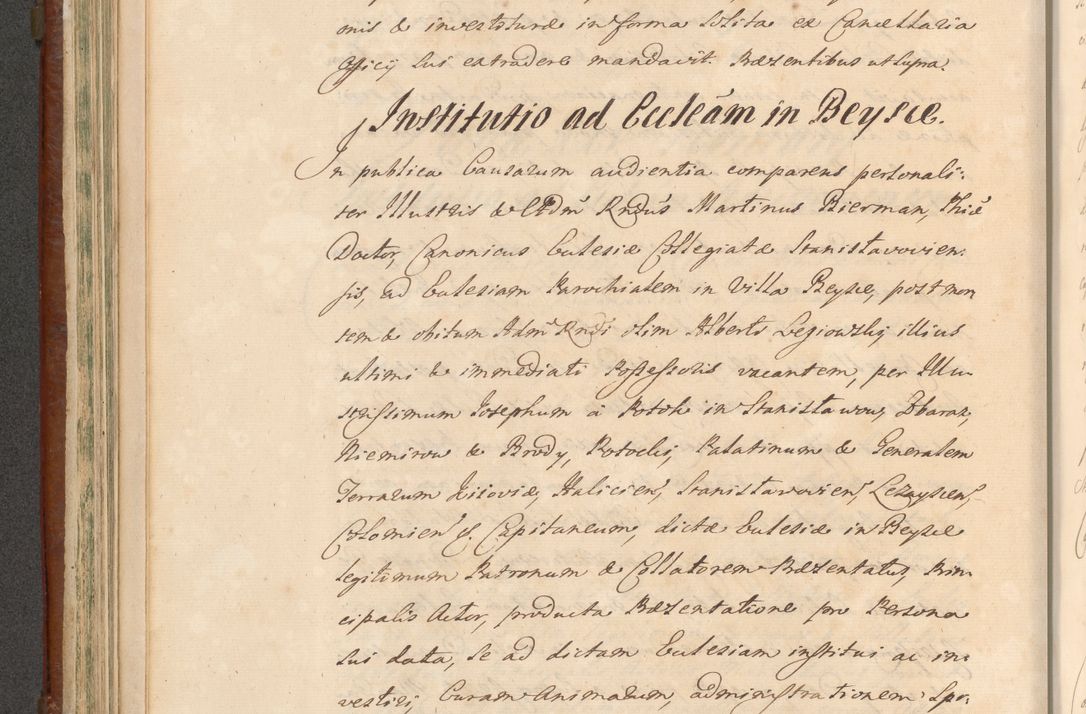 onis & investituræ in forma solita ex Cancellaria
Officij sui extradere mandavit. Præsentibus ut supra.
Institutio ad Eccleam in Beysce.
In publica Causarum audientia comparens personali:
ter Illustris & Adm Rndus Martinus Bierman, Thiæ
Doctor, Canonicus Ecclesiæ Collegiatæ Stanislavovien:
sis, ad Ecclesiam Parochialem in Villa Beysce, post mor
tem & obitum Adm Rndi olim Alberti Legiowski, illius
ultimi & immediati Possessoris vacantem, per Illu:
strissimum Josephum à Potok in Stanislawow, Zbaraz,
Niemirow & Brody, Potocki, Palatinum & Generalem
Terrarum Kijoviæ, Halicien, Stanislavovien, Lezayscen,
Colomien &. Capitaneum, dictæ Ecclesiæ in Beysce
legitimum Patronum & Collatorem Præsentatus, Prin
cipalis Actor, producta Præsentatione pro Persona
sui data, se ad dictam Ecclesiam institui ac in:
vestiri, Curam Animarum, administrationem Spi: